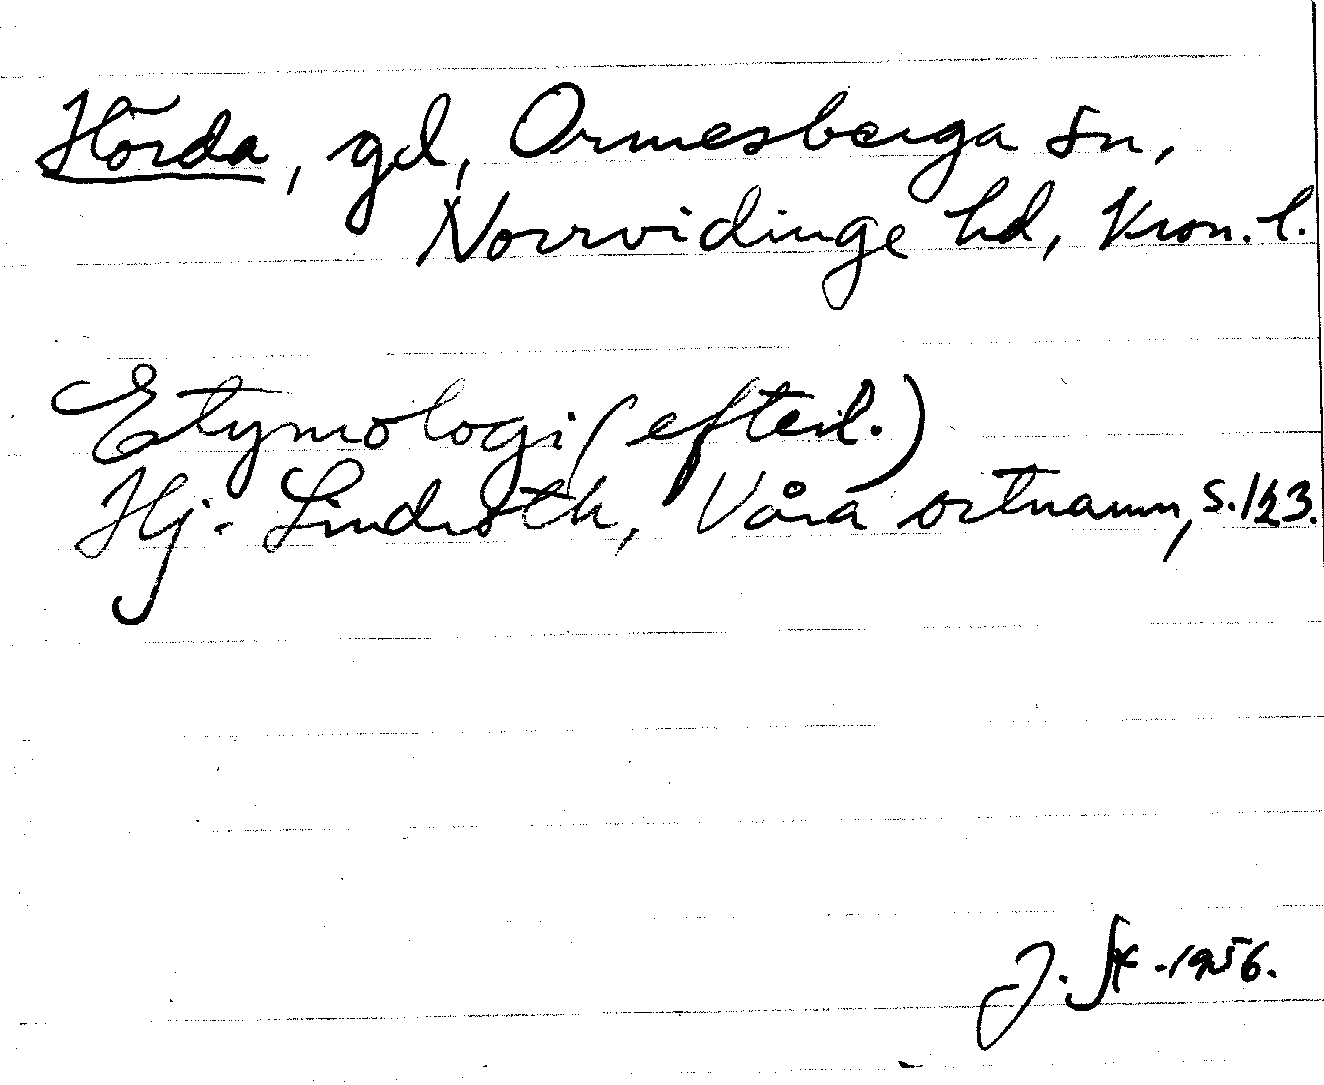 Hörda, gd, Ormesberga sn,
Norrvidinge hd, Kron. l.
Etymologi (efterl.)
Hj. Lindroth, Våra ortnamn, s. 123.
J. 1956.